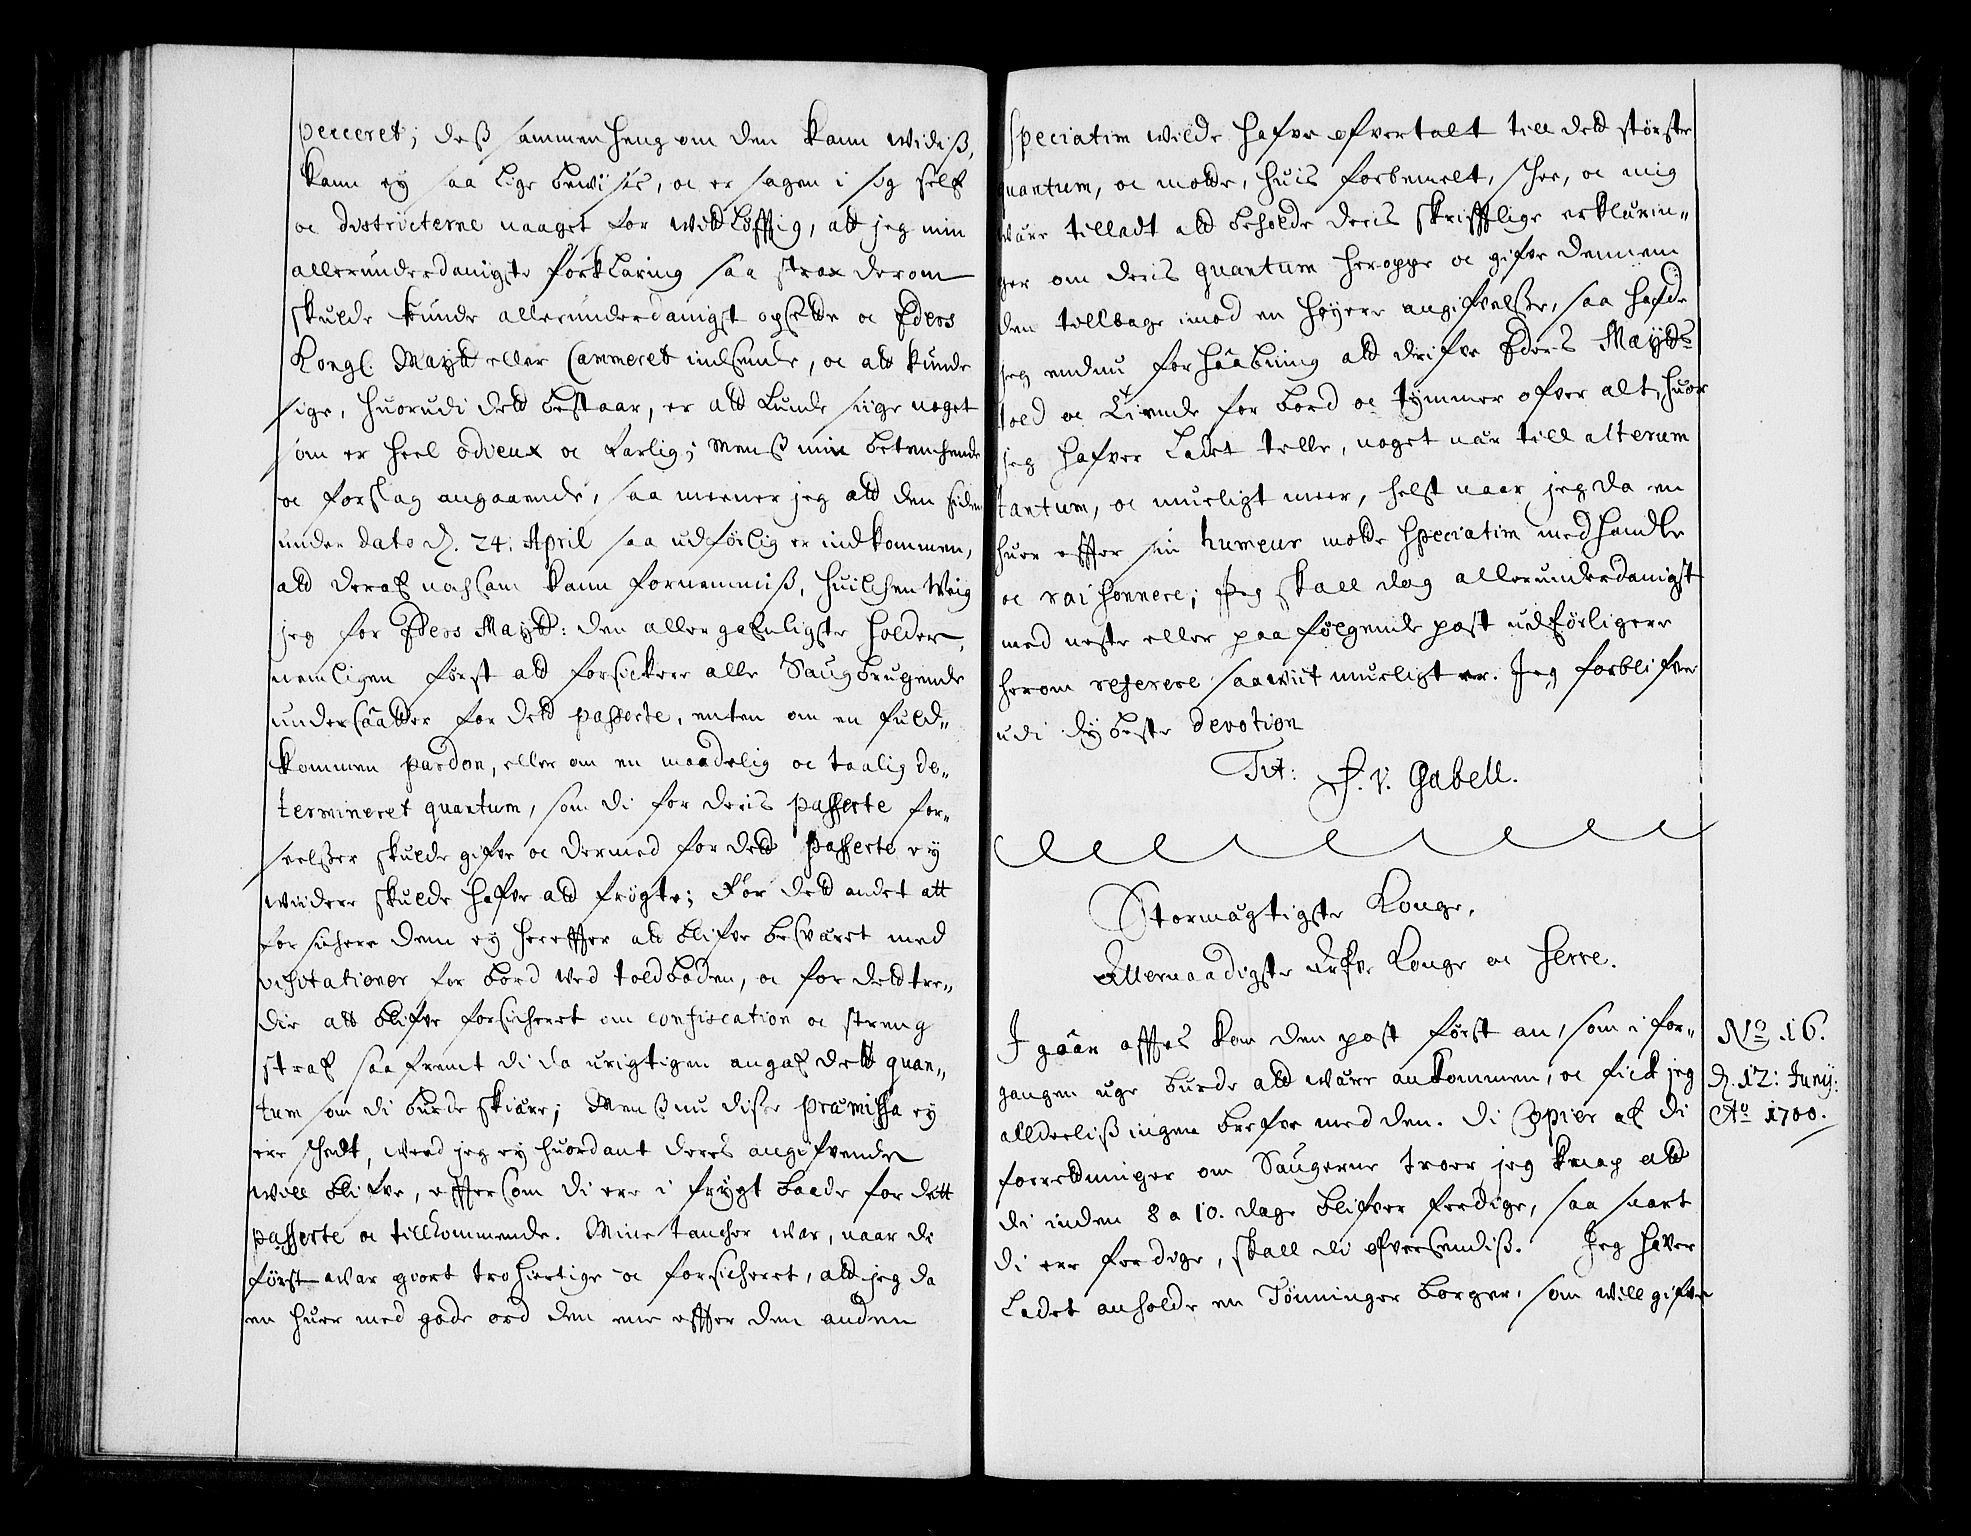 perceret; deß sammenheng om den kann widiß,
kann ey saa lige bewises, oc er sagen i sig self
oc districterne naaget for witløfftig, att jeg min
allerunderdanigste forklaring saa strax derom
skulde kunde allerunderdanigst opsette oc Eders
Kongl. Maytt eller Cammeret indsende, oc att kunde
sige, huorudi dett bestaar, er att kunde siige noget
som er heel odieux oc farlig; Menß min betenchende
oc forslag angaaende, saa meener jeg att den siden
under dato d. 24. April saa udførlig er indkommen,
att deraf nochsam kann fornemmiß, huilchen Weig
jeg for Eders Maytt: den allergafnligste holder,
nemligen først att forsickre alle Saugbrugende
undersaatter for dett passerte, enten om en fuld-
kommen pardon, eller om en maadelig oc taalig de-
termineret quantum, som di for deris passerte for-
seelßer skulde gifve oc dermed for dett passerte ey
widere skulde hafve att frøgte; For dett andet att
forsichere dem ey hereffter att blifve besvaret med
visitationer for bord ved toldboden, oc for dett tre-
die att blifve forsicheret om confiscation oc streng
straf saa fremt di da urigtigen angaf dett quan-
tum som di burde skiære; Menß nu disse præmissa ey
ere scheedt, weed jeg ey huordant deres angifvende
will blifve, effter som di ere i frygt baade for dett
passerte oc tillkommende. Mine tancher war, naar de
først war giort trohiertige oc forsicheret, att jeg da
en huer med gode ord den ene effter den anden
speciatim wilde hafve ofvertalt till dett største
quantum, oc motte, huis forbemelt, schee, oc mig
være tilladt att beholde deris skrifftlige erklærin-
ger om deris quantum heroppe oc gifve dennem
den tillbage imod en høyere angifvelse, saa hafde
jeg endnu forhaabning att drifve Eders Maytts
told oc Tiende for bord oc tymmer ofver alt, huor
jeg hafver ladet telle, noget nær till alterum
tantum, oc mueligt meer, helst naar jeg da en
huer effter sin humeur motte speciatim medhandle
oc raisonnere; Jeg skall dog allerunderdanigst
med neste eller paafølgende post udførligere
herom referere saawiit mueligt er. Jeg forblifver
udi dybeste devotion
Tit: F. V. Gabell.
Stormægtigste Konge,
Allernaadigste Arfve Konge oc Herre.
I gaar afftes kom den post først an, som i for-
gangen uge burde att være ankommen, oc fick jeg
alldeeliß ingen brefve med den. Di Copier af di
forretninger om Saugerne troer jeg knap att
di inden 8 a 10. dage blifver ferdige, saa snart
di ere ferdige, skall di ofversendiß. Jeg haver
ladet anholde en Tønninger borger, som will gifve
No. 16.
d. 12: Junij:
Ao 1700.